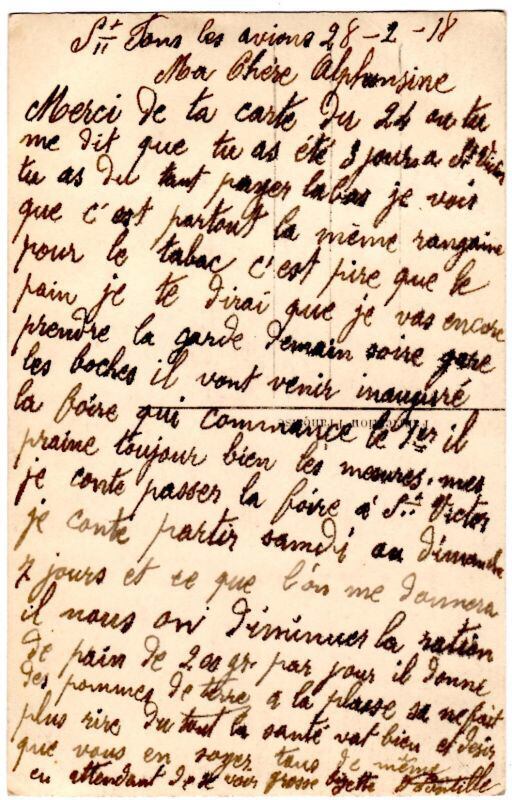 St Fons les avions 28-2-18
Ma Chère Alphonsine
Merci de ta carte du 24 ou tu
me dit que tu as été 3 jours a St Victor
tu as du tant payer labas je vois
que c'est partout la même rangaine
pour le tabac c'est pire que le
pain je te dirai que je vas encore
prendre la garde demain soire gare
les boches il vont venir inauguré
la foire qui commance le 1er il
praine toujour bien les mesures, mes
je conte passer la foire à St Victor
je conte partir samdi ou dimanche
7 jours et ce que l'on me donnera
il nous on diminuer la ration
de pain de 200 gr. par jour il donne
des pommes de terre a la plasse sa ne fait
plus rire du tout la santé vat bien et désir
que vous en soyez tous de même
en attendant de te voir grosse bizette
Fabrication Française